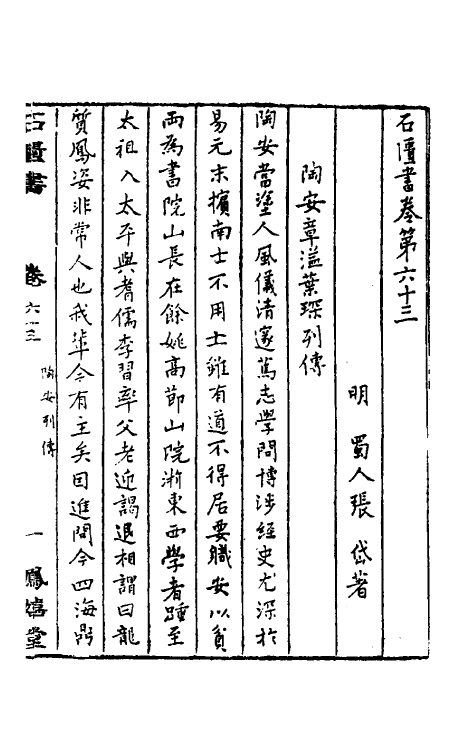 石匱書卷第六十三
明 蜀人張岱著
陶安章溢葉琛列傳
陶安當塗人風儀清邃篤志學問博涉經史尤深於
易元末擯南士不用士雖有道不得居要職安以貧
両為書院山長在餘姚高節山院浙東西學者踵至
太祖入太平與耆儒李習率父老迎謁退相謂曰龍
質鳳姿非常人也我軰今有主矣因進問今四海鼎
石匱書 卷六十三 陶安列傳 一 鳳嬉堂